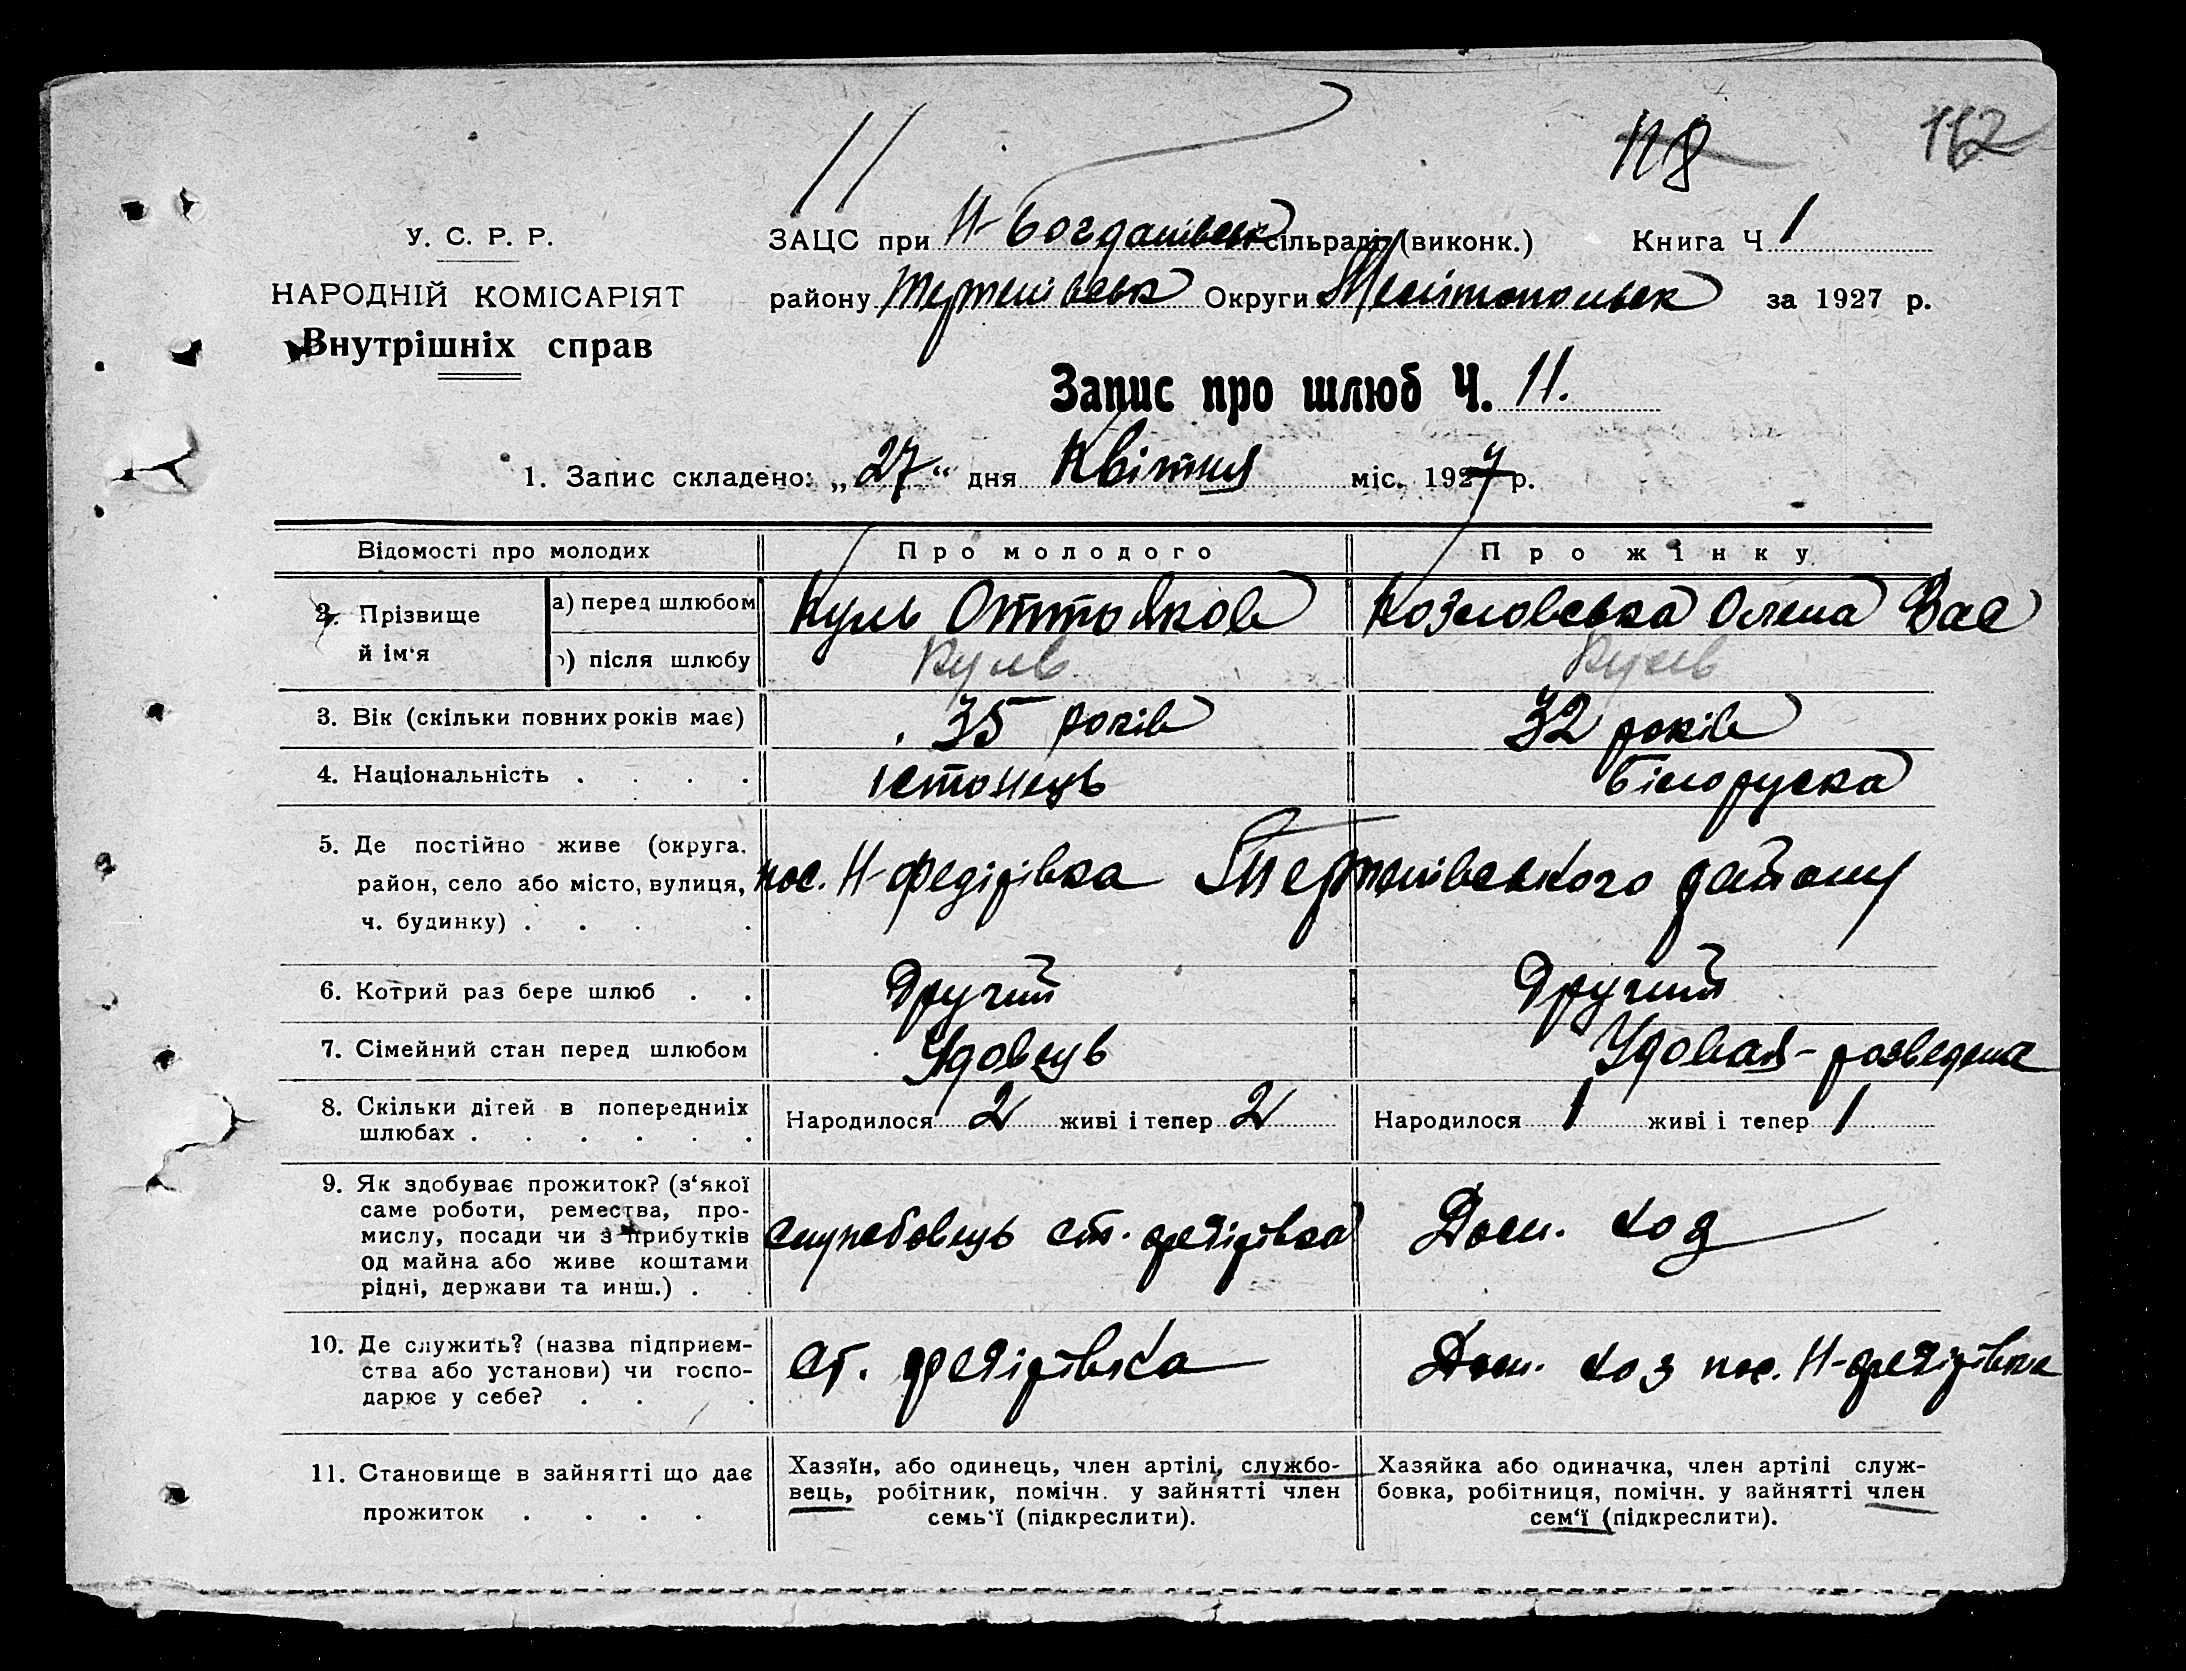 11
118
162
У. С. Р. Р.
НАРОДНІЙ КОМІСАРІЯТ
Внутрішніх справ
ЗАЦС при Н-Богданівськ сільраді (виконк.) Книга Ч 1
району Терпеніївськ Округи Мелітопольськ за 1927 р.
Запис про шлюб Ч. 11.
1. Запис складено: „27“ дня Квітня міс. 1927 р.
Відомості про молодих
Про молодого
Про жінку
2. Прізвище й ім'я
а) перед шлюбом
Куль Отто Яков
Козловська Олена Вас
б) після шлюбу
Куль
Куль
3. Вік (скільки повних років має)
35 років
32 років
4. Національність . . . .
істонець
білоруска
5. Де постійно живе (округа,
район, село або місто, вулиця,
ч. будинку) . . . .
пос. Н-Федірівка Терпеніївського району
6. Котрий раз бере шлюб . .
Другий
Другий
7. Сімейний стан перед шлюбом
Удовець
Удовая - розведена
8. Скільки дітей в попередниіх
шлюбах . . . . . .
Народилося 2 живі і тепер 2
Народилося 1 живі і тепер 1
9. Як здобуває прожиток? (з'якої
саме роботи, ремества, про-
мислу, посади чи з прибутків
од майна або живе коштами
рідні, держави та инш.) . .
служобовець ст. Федірівка
Дом. хоз
10. Де служить? (назва підприєм-
ства або установи) чи госпо-
дарює у себе? . . .
ст. Федірівка
Дом. хоз пос. Н-Федірівка
11. Становище в зайнятті що дає
прожиток . . . .
Хазяїн, або одинець, член артілі, службо-
вець, робітник, помічн. у зайнятті член
семь'ї (підкреслити).
Хазяйка або одиначка, член артілі служ-
бовка, робітниця, помічн. у зайнятті член
сем'ї (підкреслити).